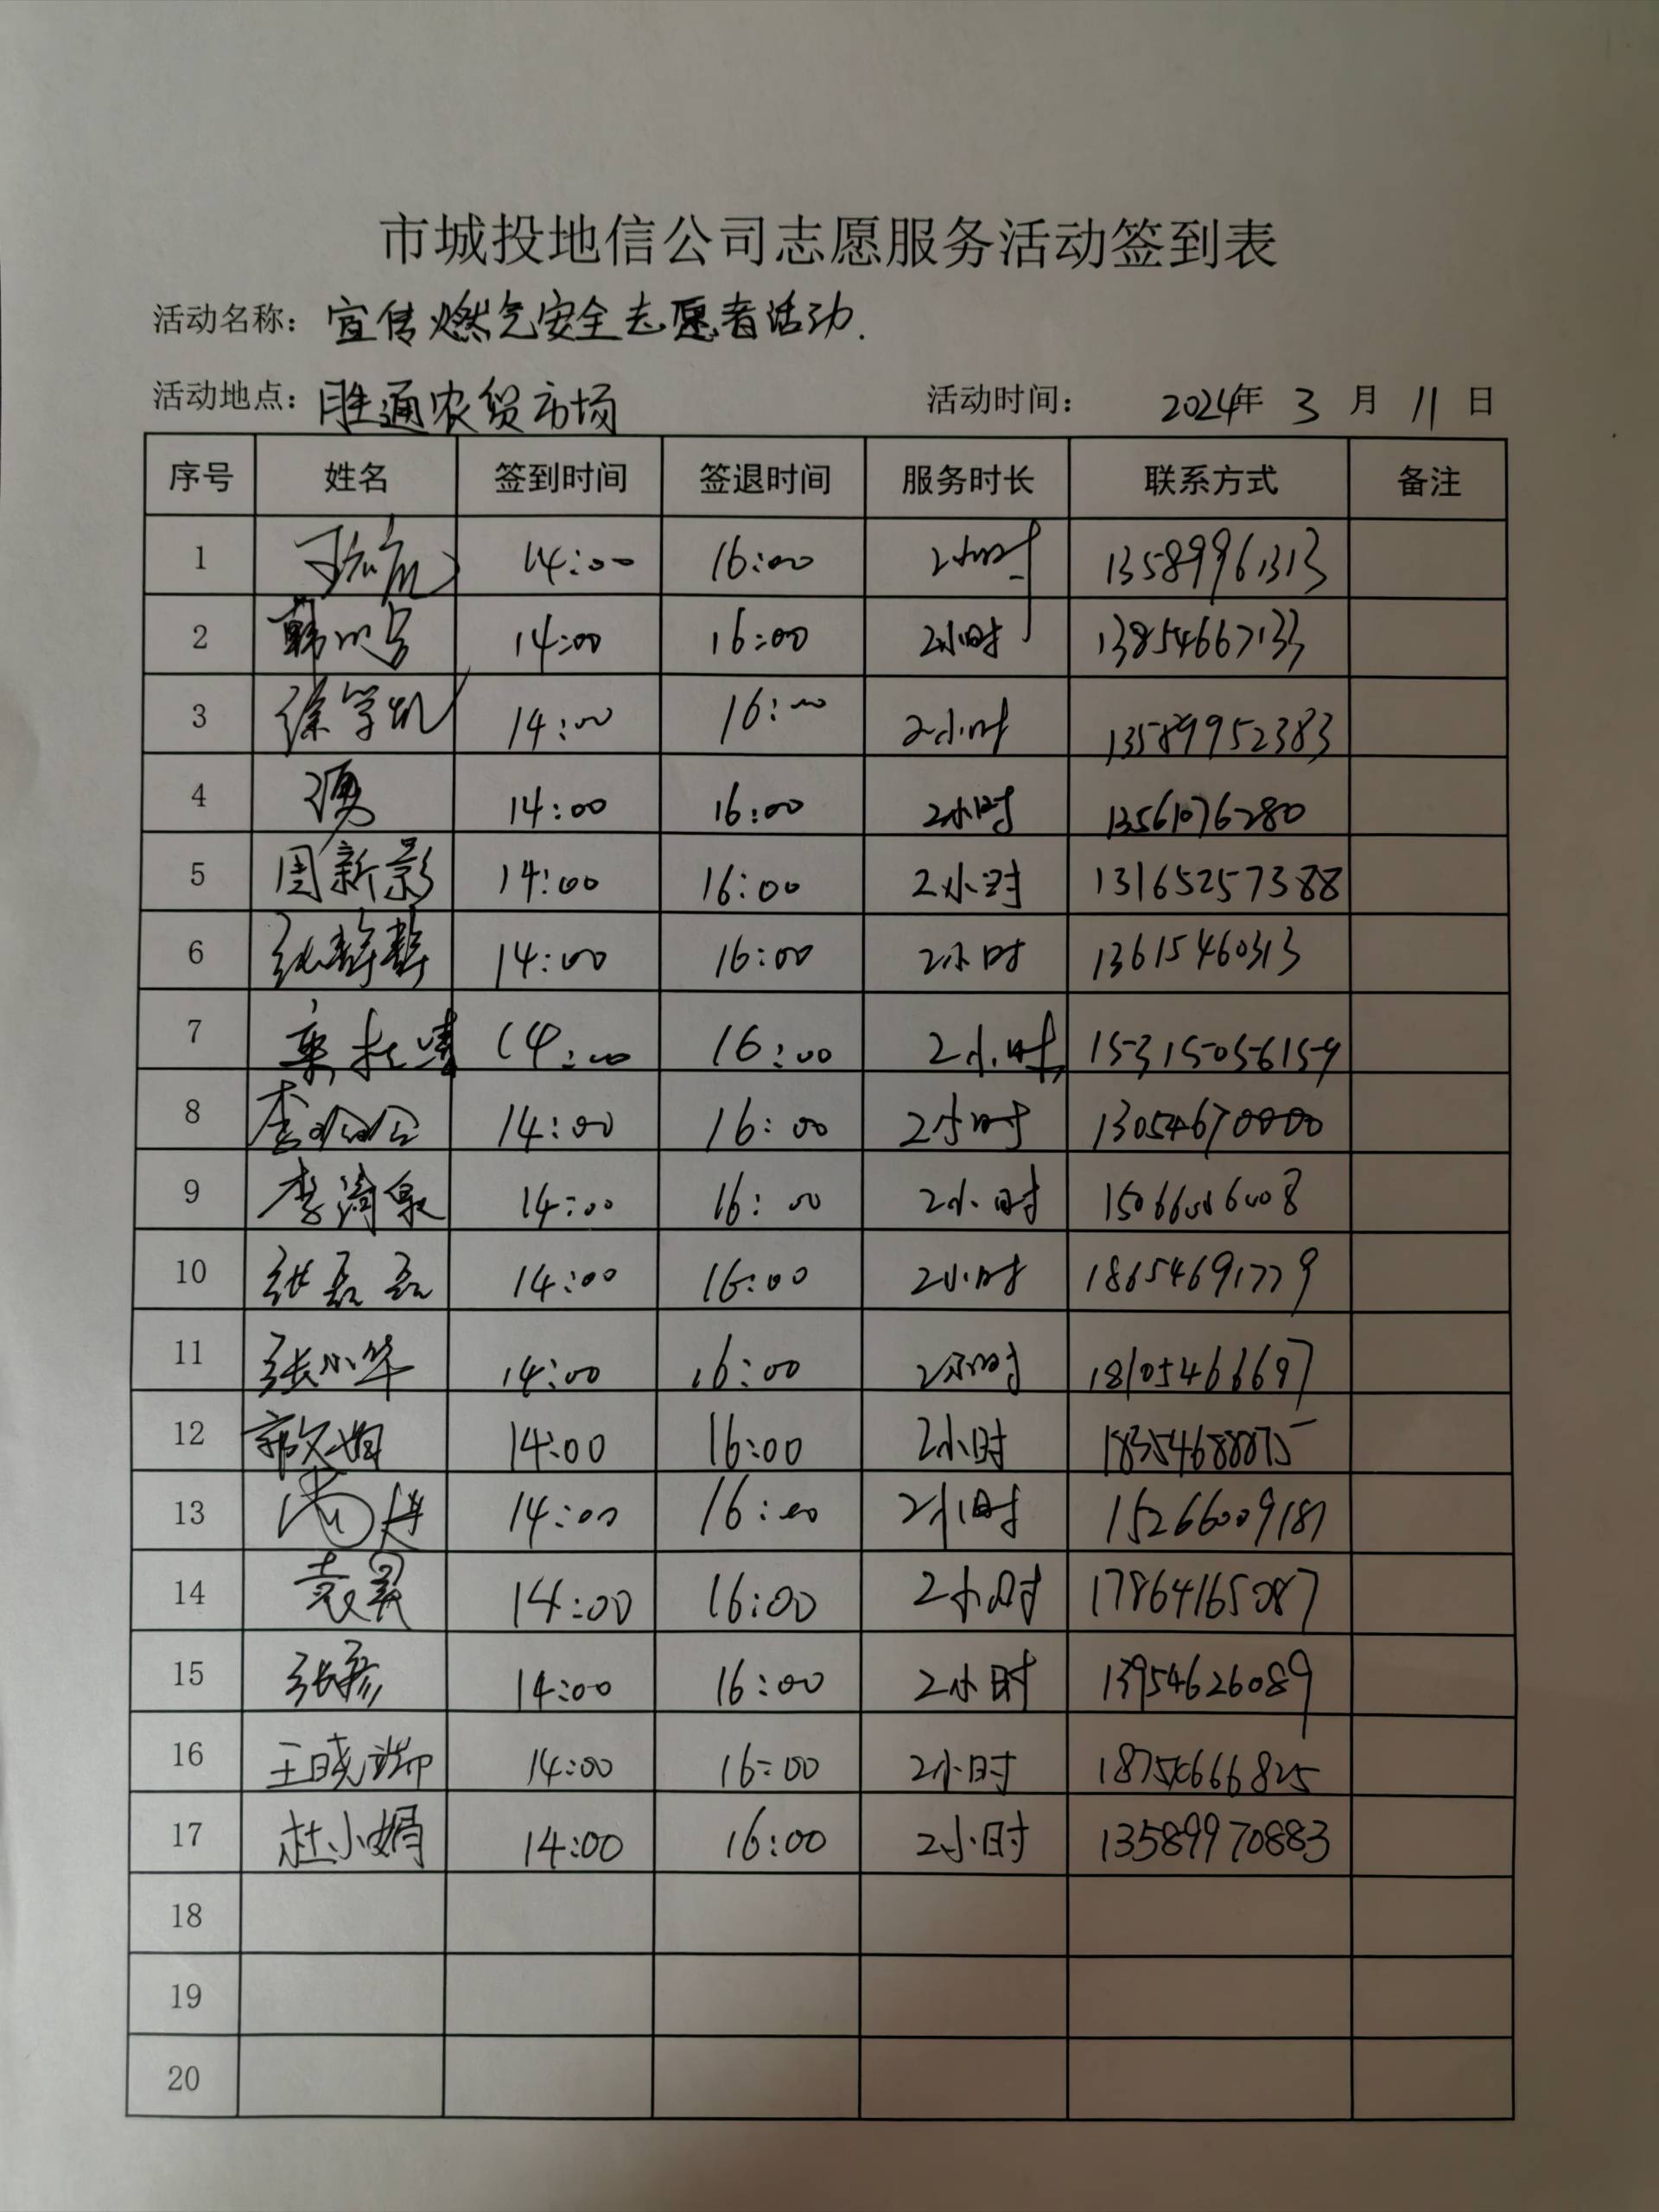 市城投地信公司志愿服务活动签到表
活动名称：宣传燃气安全志愿者活动.
活动地点：胜通农贸市场 活动时间： 2024年 3 月 11 日
序号 姓名 签到时间 签退时间 服务时长 联系方式 备注
1 14:00 16:00 2小时 13589961313
2 14:00 16:00 2小时 13854667133
3 徐学凯 14:00 16:00 2小时 13589952383
4 14:00 16:00 2小时 13561076280
5 周新影 14:00 16:00 2小时 13165257388
6 张静静 14:00 16:00 2小时 13615460313
7 14:00 16:00 2小时 15315056159
8 14:00 16:00 2小时 13054670000
9 李清泉 14:00 16:00 2小时
10 张磊磊 14:00 16:00 2小时 18654691779
11 张小华 14:00 16:00 2小时 18105466697
12 郭文娟 14:00 16:00 2小时 18354688075
13 14:00 16:00 2小时 15266009187
14 袁翠 14:00 16:00 2小时 17864165087
15 张彦 14:00 16:00 2小时 13954626089
16 王晓瑞 14:00 16:00 2小时 18754666825
17 杜小娟 14:00 16:00 2小时 13589970883
18
19
20